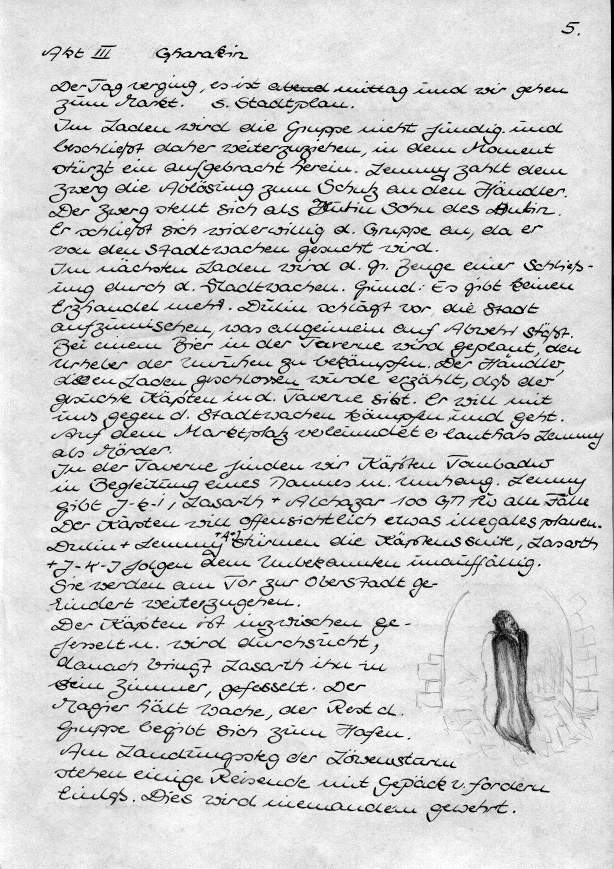 5.
Akt III Gharakin
Der Tag verging, es ist abend mittag und wir gehen
zum Markt. s. Stadtplan.
Im Laden wird die Gruppe nicht fündig und
beschließt daher weiterzuziehen, in dem Moment
stürzt ein aufgebracht herein. Lemmy zahlt dem
Zwerg die Ablösung zum Schutz an den Händler.
Der Zwerg stellt sich als Sohn des
Er schließt sich widerwillig d. Gruppe an, da er
von den Stadtwachen gesucht wird.
Im nächsten Laden wird d. Gr. Zeuge einer Schließ-
ung durch d. Stadtwachen. Grund: Es gibt keinen
Erzhandel mehr. Dulin schlägt vor, die Stadt
aufzumischen, was allgemein auf Abwehr stößt.
Bei einem Bier in der Taverne wird geplant, den
Urheber der Unruhen zu bekämpfen. Der Händler,
dessen Laden geschlossen wurde erzählt, daß der
gesuchte Käpten in d. Taverne sitzt. Er will mit
uns gegen d. Stadtwachen kämpfen und geht.
Auf dem Marktplatz verleumdet e lauthals Lemmy
als Mörder.
In der Taverne finden wir Käpten Tombadur
in Begleitung eines Mannes m. Umhang. Lemmy
gibt J-k-i, Lasarth + Alchazar 100 GM für alle Fälle
Der Käpten will offensichtlich etwas illegales planen.
Dulin + Lemmy +A. stürmen die Käptenssuite, Lasarth
+ J-K-J folgen dem Unbekannten unauffällig.
Sie werden am Tor zur Oberstadt ge-
hindert weiterzugehen.
Der Käpten ist inzwischen ge-
fesselt u. wird durchsucht,
danach bringt Lasarth ihn in
sein Zimmer, gefesselt. Der
Magier hält Wache, der Rest d.
Gruppe begibt sich zum Hafen.
Am Landungssteg der Löwensturm
stehen einige Reisende mit Gepäck u. fordern
Einlaß. Dies wird niemandem gewehrt.